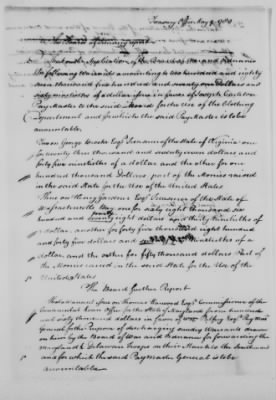 Treasury Office May 9. 1780
The Board of Treasury report
That on the Application of the Board of War and Ordnance
the following warrants amounting to two hundred and eighty
nine thousand five hundred and seventy nine Dollars and
sixty nine ninetieths of a dollar issue in favor of Joseph Carleton
Pay Master to the said Board for the Use of the Clothing
Department and for which the said Pay Master is to be
accountable,
One on George Brooke Esqr Treasurer of the State of Virginia for
ninety three thousand and seventy seven dollars and
forty five ninetieths of a dollar and the other for one
hundred thousand Dollars part of the Monies raised
in the said State for the Use of the United States
Three on Henry Gardner Esqr Treasurer of the State of
Massachusetts Bay one for sixty thousand
hundred and twenty eight dollars and thirty ninetieths of
a dollar, another for forty five thousand eight hundred
and forty five dollars and ninetieths of a
dollar, and the other for fifty thousand dollars Part of
the Monies raised in the said State for the Use of the
United States
The Board further Report
That a warrant issue on Thomas Harwood Esqr Commissioner of the
Continental Loan Office for the State of Maryland for one hundred
and sixty thousand dollars in favor of Wm Palfrey Esqr Pay Mastr
General for the Purpose of discharging sundry Warrants drawn
on him by the Board of War and Ordnance for forwarding the
Maryland & Delaware troops on their March to the Southward
and for which the said Pay Master General is to be
accountable